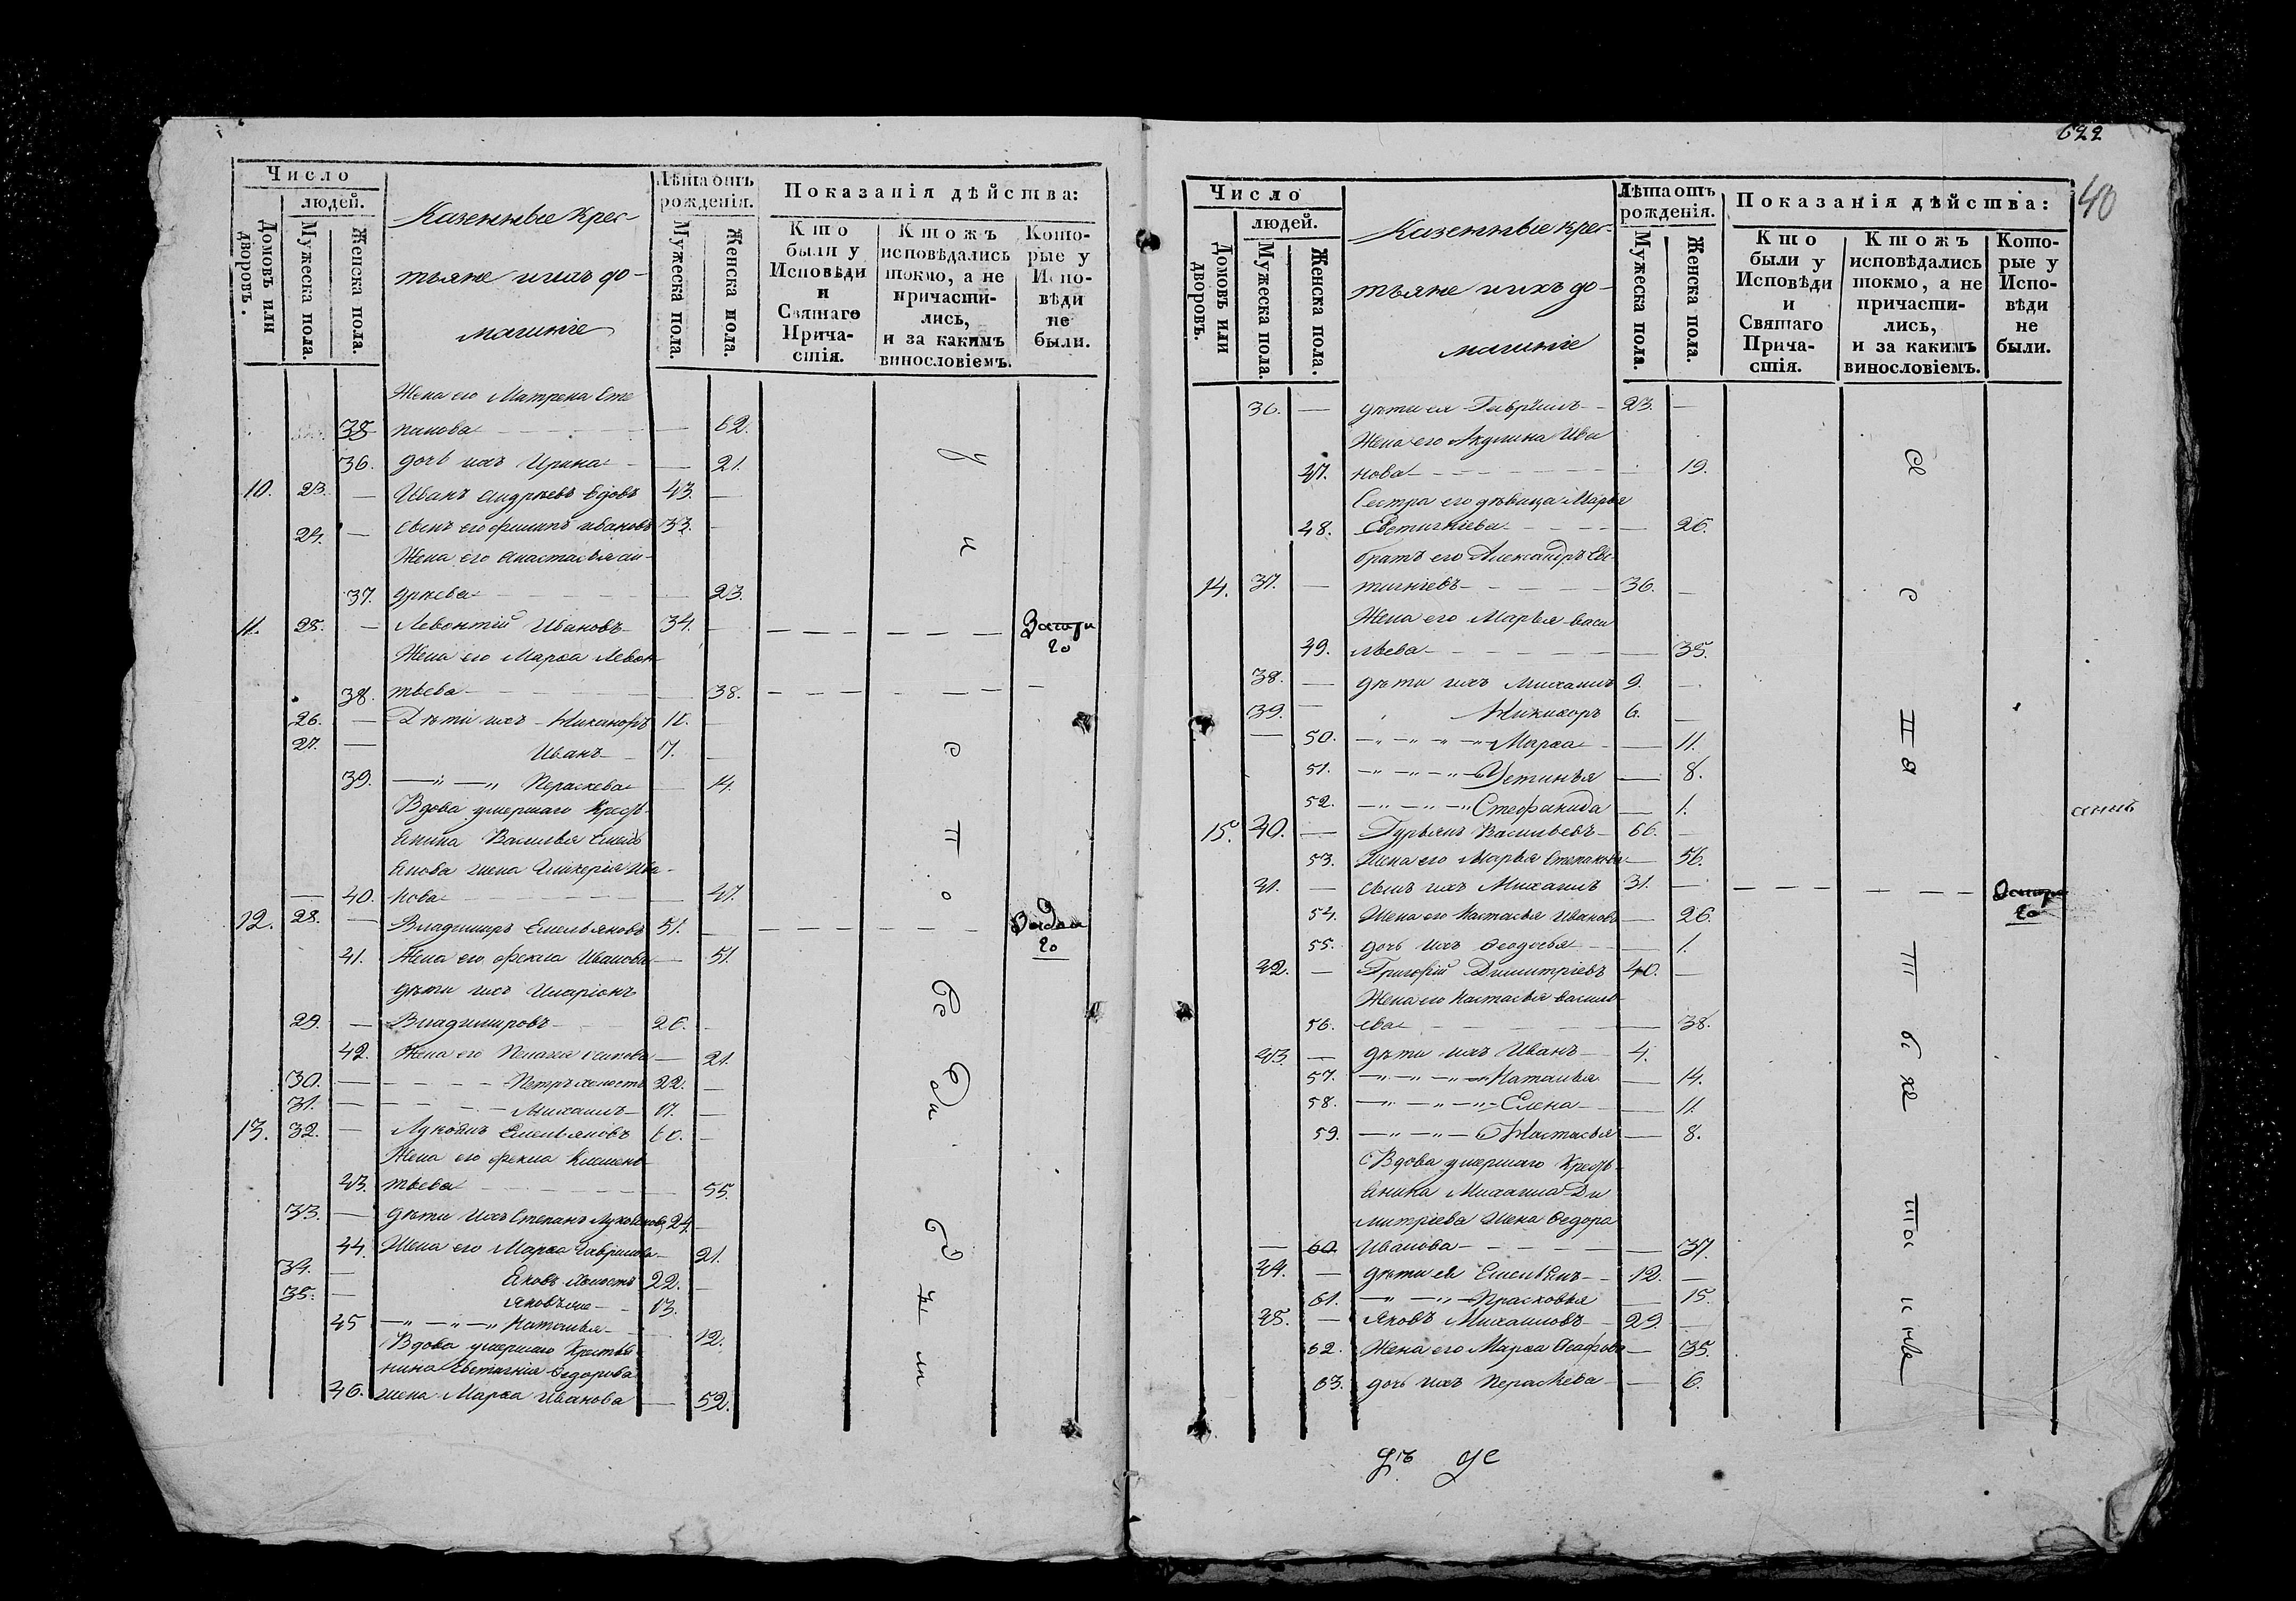 Число
людей.
Домовъ или дворовъ.
Мужеска пола.
Женска пола.
Казенные крес-
тьяне и ихъ до-
машніе
Лѣта отъ рожденія.
Мужеска пола.
Женска пола.
Показанія дѣйства:
Кто были у Исповѣди и Святаго Причастія.
Ктожъ исповѣдались токмо, а не причастились, и за какимъ винословіемъ.
Которые у Исповѣди не были.
Жена его Матрена Сте
35 панова 62.
36. дочь ихъ Ирина 21.
10. 23. — Иванъ Андреевъ вдовъ 43. —
24. — сынъ его Филипъ Ивановъ 33. —
Жена его Анастасья ан-
37. дреева 23.
11. 25. — Левонтій Ивановъ 34. —
Жена его Марѳа Левон
38. тьева 38.
26. — Дѣти ихъ Никаноръ 10. —
27. — Иванъ 7. —
39. Пераскева 14.
Вдова умершаго Кресть
янина Василья Емель
янова жена Гликерія Ива-
— 40. нова 47.
12. 28. — Владимиръ Емельяновъ 51. —
41. Жена его Ѳекла Иванова — 51.
дѣти ихъ Иларіонъ
29. — Владимировъ 26. —
42. Жена его Пелагея Осипова — 21.
30. — Петръ холостъ 22. —
31. — Михаилъ 17. —
13. 32. — Лукьянъ Емельяновъ 60. —
Жена его Ѳекла Климен
43. тьева 55.
33. — дѣти ихъ Степанъ Лукьяновъ 24. —
44. Жена его Марѳа Гаврилова — 21.
34. — Яковъ холостъ 22. —
35. — Яковъ же 13. —
45 Наталья 12.
Вдова умершаго Крестья
нина Евтигнія Ѳедорова
46. жена Марѳа Иванова — 52.
622
40
Число
людей.
Домовъ или дворовъ.
Мужеска пола.
Женска пола.
Казенные крес-
тьяне и ихъ до-
машніе
Лѣта отъ рожденія.
Мужеска пола.
Женска пола.
Показанія дѣйства:
Кто были у Исповѣди и Святаго Причастія.
Ктожъ исповѣдались токмо, а не причастились, и за какимъ винословіемъ.
Которые у Исповѣди не были.
36. — дѣти ея Гавріилъ 23. —
Жена его Акулина Ива
47. нова 19.
Сестра его дѣвица Марья
48. Евтигніева — 26.
братъ его Александръ Ев-
14. 37. — тигніевъ 36. —
Жена его Марья васи
49. льева — 35.
38. — дѣти ихъ Михаилъ 9. —
39. — Никифоръ 6. —
— 50. Марѳа — 11.
51. Устинья — 8.
52. Стефанида — 1.
15. 40. — Гурьянъ Васильевъ 66. —
53. Жена его Марья Степанова — 56.
41. — сынъ ихъ Михаилъ 31. —
54. Жена его Настасья Иванова — 26.
55. дочь ихъ Ѳеодосья — 1.
42. — Григорій Димитріевъ 40. —
Жена его Настасья василь
56. ева — 38.
43. — дѣти ихъ Иванъ 4.
57. Наталья — 14.
58. Елена — 11.
59. Настасья — 8.
Вдова умершаго Кресть
янина Михаила Ди
митріева жена Ѳедора
— 60. Иванова — 37.
44. — дѣти ея Емельянъ 12. —
61. Прасковья — 15.
45. — Яковъ Михаиловъ 29. —
62. Жена его Марѳа — 35.
63. дочь ихъ Пераскева — 6.